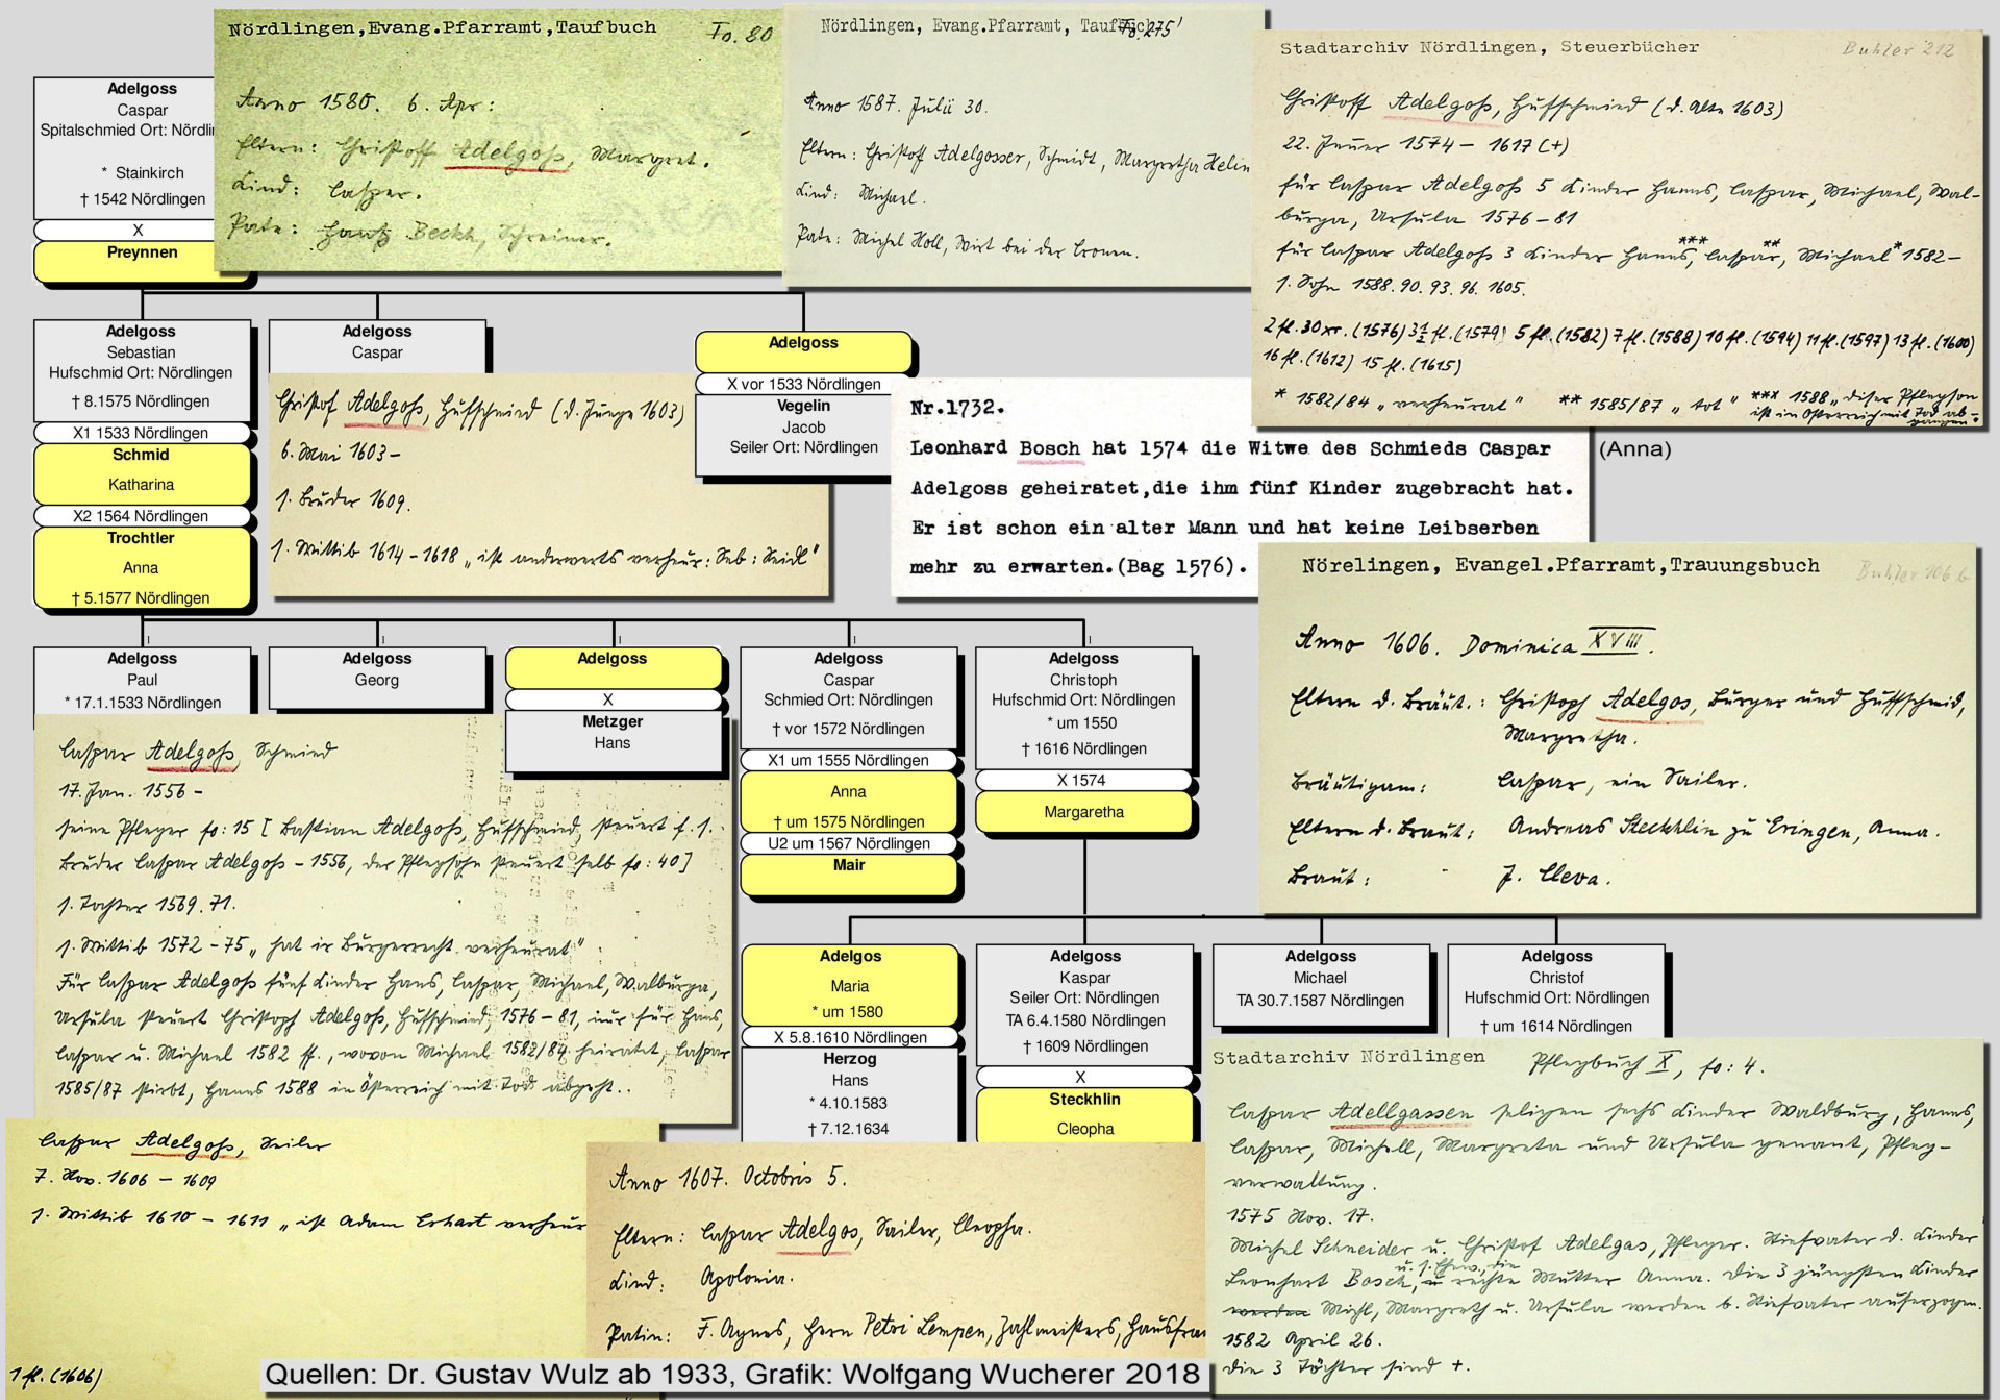 Nördlingen,Evang.Pfarramt,Taufbuch Fo. 80
Anno 1580. 6. Apr:
Eltern: Christoff Adelgoß, Margret.
Kind: Casper.
Pate: Beckh, Schreiner.
Nördlingen, Evang.Pfarramt, Taufbuch
Anno 1587. Julii 30.
Eltern: Christoff Adelgosser, Schmidt, Margretha Helin
Kind: Michael.
Pate: Michel Holl, Wirt bei der Cronen.
Stadtarchiv Nördlingen, Steuerbücher Buhler 212
Christoff Adelgoß, Hufschmied (d. Alte 1603)
22. Jenner 1574 – 1617 (+)
für Caspar Adelgoß 5 Kinder Hanns, Caspar, Michael, Wal-
burga, Ursula 1576–81
für Caspar Adelgoß 3 Kinder Hanns,*** Caspar,** Michael* 1582–
1. Sohn 1588. 90. 93. 96. 1605.
2 fl. 30 xr. (1576) 3½ fl. (1579) 5 fl. (1582) 7 fl. (1588) 10 fl. (1594) 11 fl. (1597) 13 fl. (1600)
16 fl. (1612) 15 fl. (1615)
* 1582/84 „verheurat" ** 1585/87 „tot" *** 1588 „diser Pflegson
ist in Österreich mit Tod ab-
gangen."
Adelgoss
Caspar
Spitalschmied Ort: Nördli
* Stainkirch
† 1542 Nördlingen
X
Preynnen
Adelgoss
Sebastian
Hufschmid Ort: Nördlingen
† 8.1575 Nördlingen
X1 1533 Nördlingen
Schmid
Katharina
X2 1564 Nördlingen
Trochtler
Anna
† 5.1577 Nördlingen
Adelgoss
Caspar
Adelgoss
X vor 1533 Nördlingen
Vegelin
Jacob
Seiler Ort: Nördlingen
Christof Adelgoß, Hufschmied (d. Junge 1603)
6. Mai 1603 –
1. Bruder 1609.
1. Wittib 1614–1618 „ist anderwerts verheur: Seb: Seidl"
Nr.1732.
Leonhard Bosch hat 1574 die Witwe des Schmieds Caspar
Adelgoss geheiratet,die ihm fünf Kinder zugebracht hat.
Er ist schon ein alter Mann und hat keine Leibserben
mehr zu erwarten.(Bag 1576).
(Anna)
Nörelingen, Evangel.Pfarramt,Trauungsbuch Buhler 106 b
Anno 1606. Dominica XVIII.
Eltern d. Bräut.: Christoph Adelgos, Burger und Huffschmid,
Margretha.
Bräutigam: Caspar, ein Sailer.
Eltern d. Braut: Andreas Steckhlin zu Eringen, Anna.
Braut: J. Cleva.
Adelgoss
Paul
* 17.1.1533 Nördlingen
Adelgoss
Georg
Adelgoss
X
Metzger
Hans
Adelgoss
Caspar
Schmied Ort: Nördlingen
† vor 1572 Nördlingen
X1 um 1555 Nördlingen
Anna
† um 1575 Nördlingen
U2 um 1567 Nördlingen
Mair
Adelgoss
Christoph
Hufschmid Ort: Nördlingen
* um 1550
† 1616 Nördlingen
X 1574
Margaretha
Caspar Adelgoß, Schmied
17. Jan. 1556 –
seine Pfleger fo: 15 [Bastian Adelgoß, Hufschmied, steuert f. s.
Bruder Caspar Adelgoß – 1556, der Pflegsohn steuert selb fo: 40]
1. Tochter 1569. 71.
1. Wittib 1572–75 „hat ir Burgerrecht verheurat"
Für Caspar Adelgoß fünf Kinder Hans, Caspar, Michael, Walburga,
Ursula steuert Christoph Adelgoß, Hufschmied, 1576–81, nur für Hans,
Caspar u. Michael 1582 ff., wovon Michael 1582/84 heiratet, Caspar
1585/87 stirbt, Hanns 1588 in Österreich mit Tod abgeht..
Adelgos
Maria
* um 1580
X 5.8.1610 Nördlingen
Herzog
Hans
* 4.10.1583
† 7.12.1634
Adelgoss
Kaspar
Seiler Ort: Nördlingen
TA 6.4.1580 Nördlingen
† 1609 Nördlingen
X
Steckhlin
Cleopha
Adelgoss
Michael
TA 30.7.1587 Nördlingen
Adelgoss
Christof
Hufschmid Ort: Nördlingen
† um 1614 Nördlingen
Caspar Adelgoß, Seiler
7. Nov. 1606 – 1609
1. Wittib 1610 – 1611 „ist Adam Erhart verheur
1 fl. (1606)
Anno 1607. Octobris 5.
Eltern: Caspar Adelgos, Sailer, Cleopha.
Kind: Apolonia.
Patin: F. Agnes, Hern Petri Lempen, Zahlmeisters, Hausfrau
Stadtarchiv Nördlingen Pflegbuch X, fo: 4.
Caspar Adellgassen seligen sechs Kinder Waldburg, Hanns,
Caspar, Michell, Margreta und Ursula genant, Pfleg-
verwaltung.
1575 Nov. 17.
Michel Schneider u. Christof Adelgas, Pfleger. Stiefvater d. Kinder
Leonhart Bosch, u. s. Ehew., die rechte Mutter Anna. Die 3 jüngsten Kinder
werden Michl, Margreth u. Ursula werden b. Stiefvater auferzogen.
1582 April 26.
Die 3 Töchter sind +.
Quellen: Dr. Gustav Wulz ab 1933, Grafik: Wolfgang Wucherer 2018